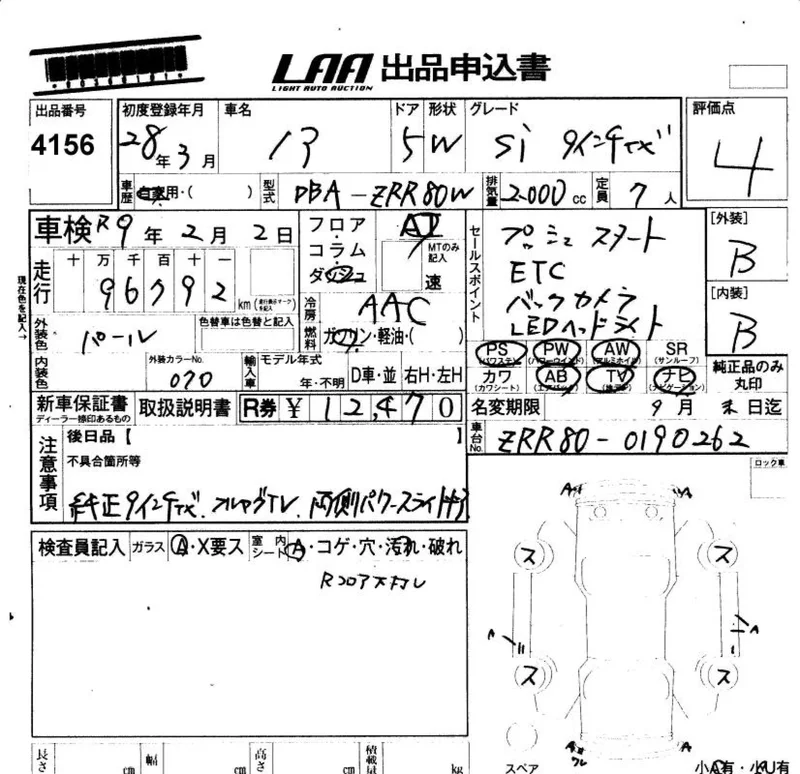 LAA 出品申込書
LIGHT AUTO AUCTION
出品番号 初度登録年月 車名 ドア 形状 グレード 評価点
4156 28年3月 5 W Si 9インチナビ 4
車歴 自家用・( ) 型式 DBA-ZRR80W 排気量 2.000cc 定員 7人
車検 R9年2月2日 フロア・コラム ダッシュ AT MTのみ記入 速
セールスポイント
プッシュスタート
ETC
バックカメラ
LEDヘッドライト
[外装]
B
[内装]
B
現在色を記入→
走行 十 万 千 百 十 一
96792 km
冷房 AAC
外装色 パール 色替車は色替と記入
燃料 ガソリン・軽油・( )
内装色 外装カラーNo. 070 輸入車 モデル年式 年・不明 D車・並 右H・左H
PS (パワステ) PW (パワーウインド) AW (アルミホイル) SR (サンルーフ)
カワ (カワシート) AB (エアバック) TV ナビ (ナビゲーション)
純正品のみ丸印
新車保証書 ディーラー捺印あるもの 取扱説明書 R券 ¥ 12,470 名変期限 9月末日迄
車台No. ZRR80-0190262
注意事項
後日品【 】
不具合箇所等
純正9インチナビ.フルセグTV.両側パワースライド
ロック車
検査員記入 ガラス A・X要ス 室内シート A・コゲ・穴・汚れ・破れ
A A
ス ス
A A
ス ス
A A
スペア
長さ cm 幅 cm 高さ cm 積載量 kg
小A有・小U有